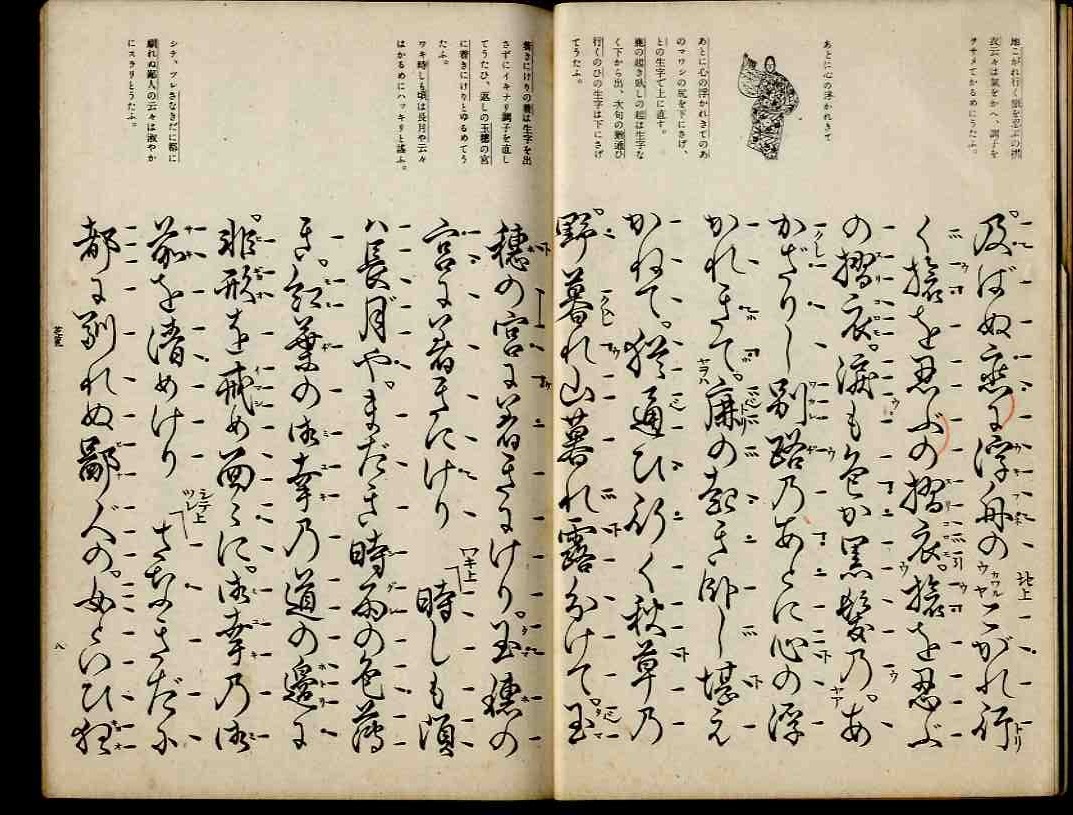 地こがれ行く旅を忍ぶの摺
衣云々は氣をかへ、調子を
ヲサメてかるめにうたふ。
あとに心の浮かれきて
あとに心の浮かれきてのあ
のマワシの尻を下にさげ、
との生字で上に直す。
鹿の起き臥しの起は生字な
く下から出、次句の通ひ
行くのひの生字は下にさげ
てうたふ。
及ばぬ恋に浮舟の 地上 こがれ行
く旅を忍ぶの摺衣。旅を忍ぶ
の摺衣。涙も色か黒髪乃。あ
かざりし別路乃あとに心の浮
かれきて。鹿の起き臥し堪え
かねて。猶通ひ行く秋草乃
野暮れ山暮れ露分けて。玉
着きにけりの着は生字を出
さずにイキナリ調子を直し
てうたひ、返しの玉穂の宮
に着きにけりとゆるめてう
たふ。
ワキ時しも頃は長月や云々
はかるめにハッキリと謡ふ。
シテ、ツレさなきだに都に
馴れぬ鄙人の云々は淑やか
にスラリとうたふ。
穂の宮に着きにけり。玉穂の
宮に着きにけり ワキ上 時しも頃
ハ長月や。まだき時雨の色薄
き。紅葉の御幸乃道の邊に
非形を戒め面々に。御幸乃御
前を清めけり シテ ツレ上 さなきだに
都に馴れぬ鄙人の。女といひ狂
花筐
八